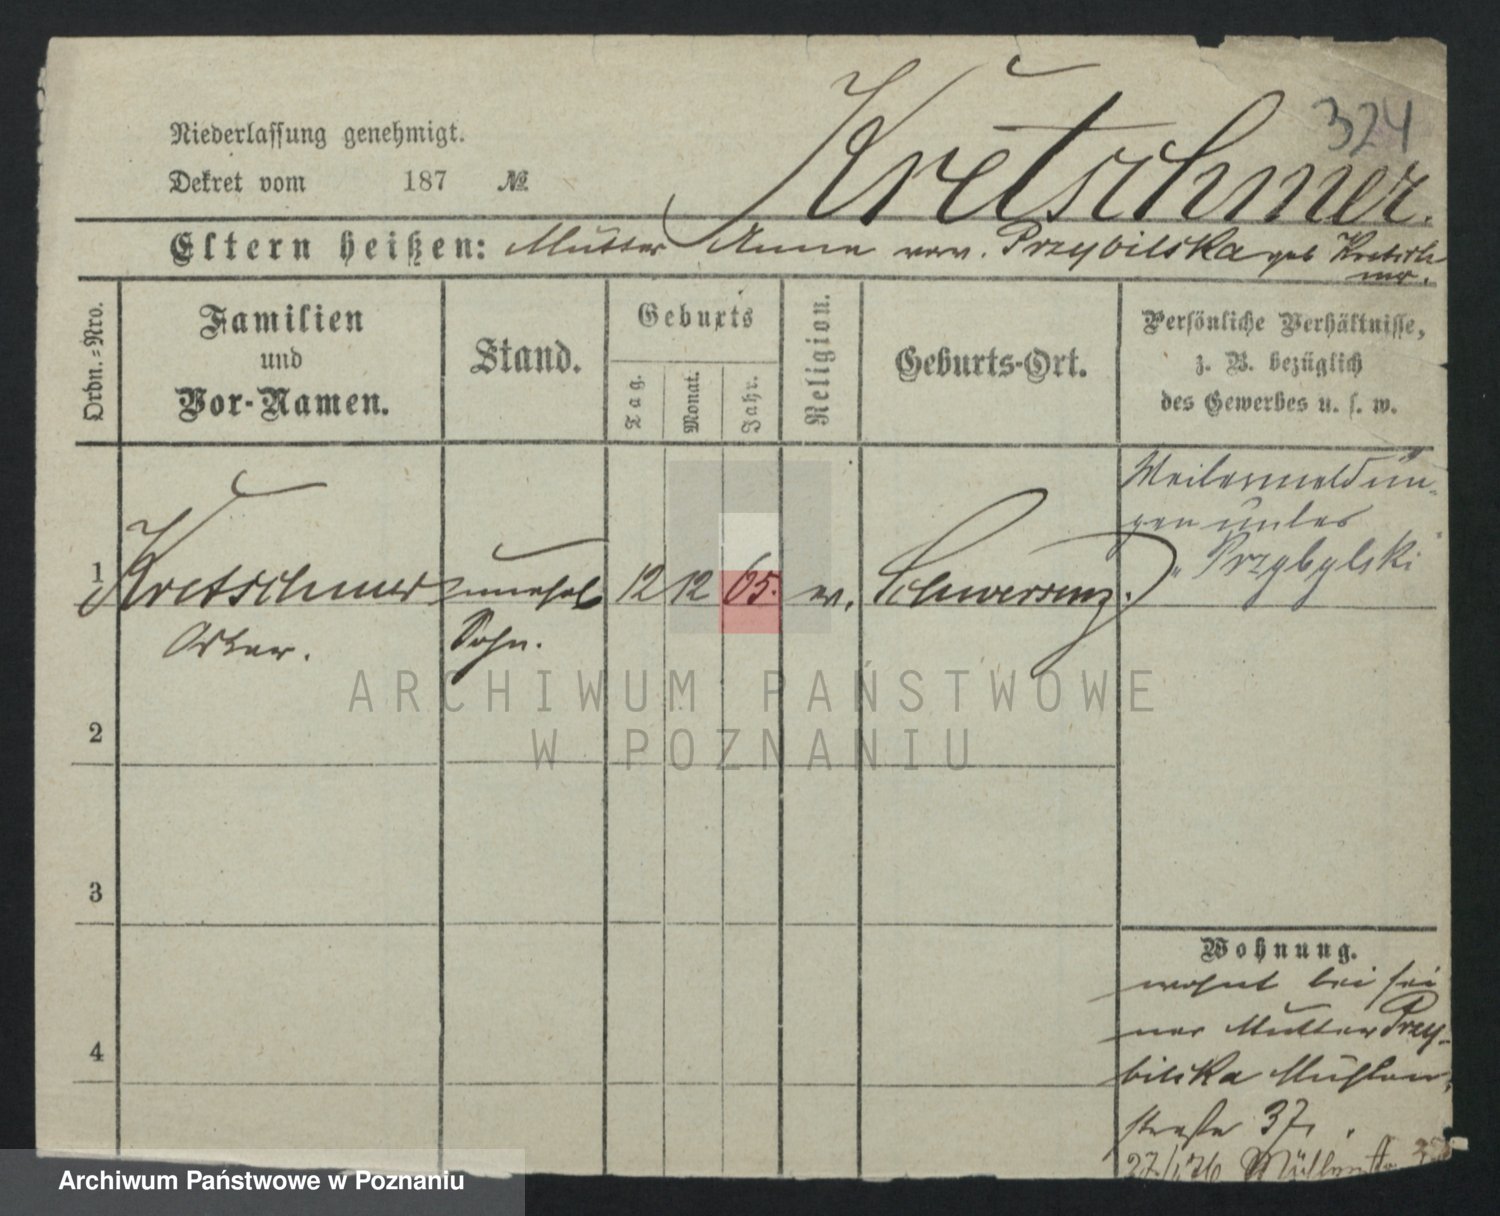 324
Kretschmer.
Niederlassung genehmigt.
Dekret vom 187 №
Eltern heißen: Mutter Anna verw. Przybilska geb Kretsch
mer.
Ordn.-Nro.
Familien
und
Vor-Namen.
Stand.
Geburts
Tag.
Monat.
Jahr.
Religion.
Geburts-Ort.
Persönliche Verhältnisse,
z. B. bezüglich
des Gewerbes u. s. w.
1 Kretschmer unehel 12 12 65. ev. Schwersenz.
Oskar. Sohn.
Weitermeldun-
gen unter
"Przybylski"
2
3
4
Wohnung.
wohnt bei sei
ner Mutter Przy-
bilska Mühlen-
straße 37.
27/1 76 Mühlenstr
ARCHIWUM PAŃSTWOWE
W POZNANIU
Archiwum Państwowe w Poznaniu